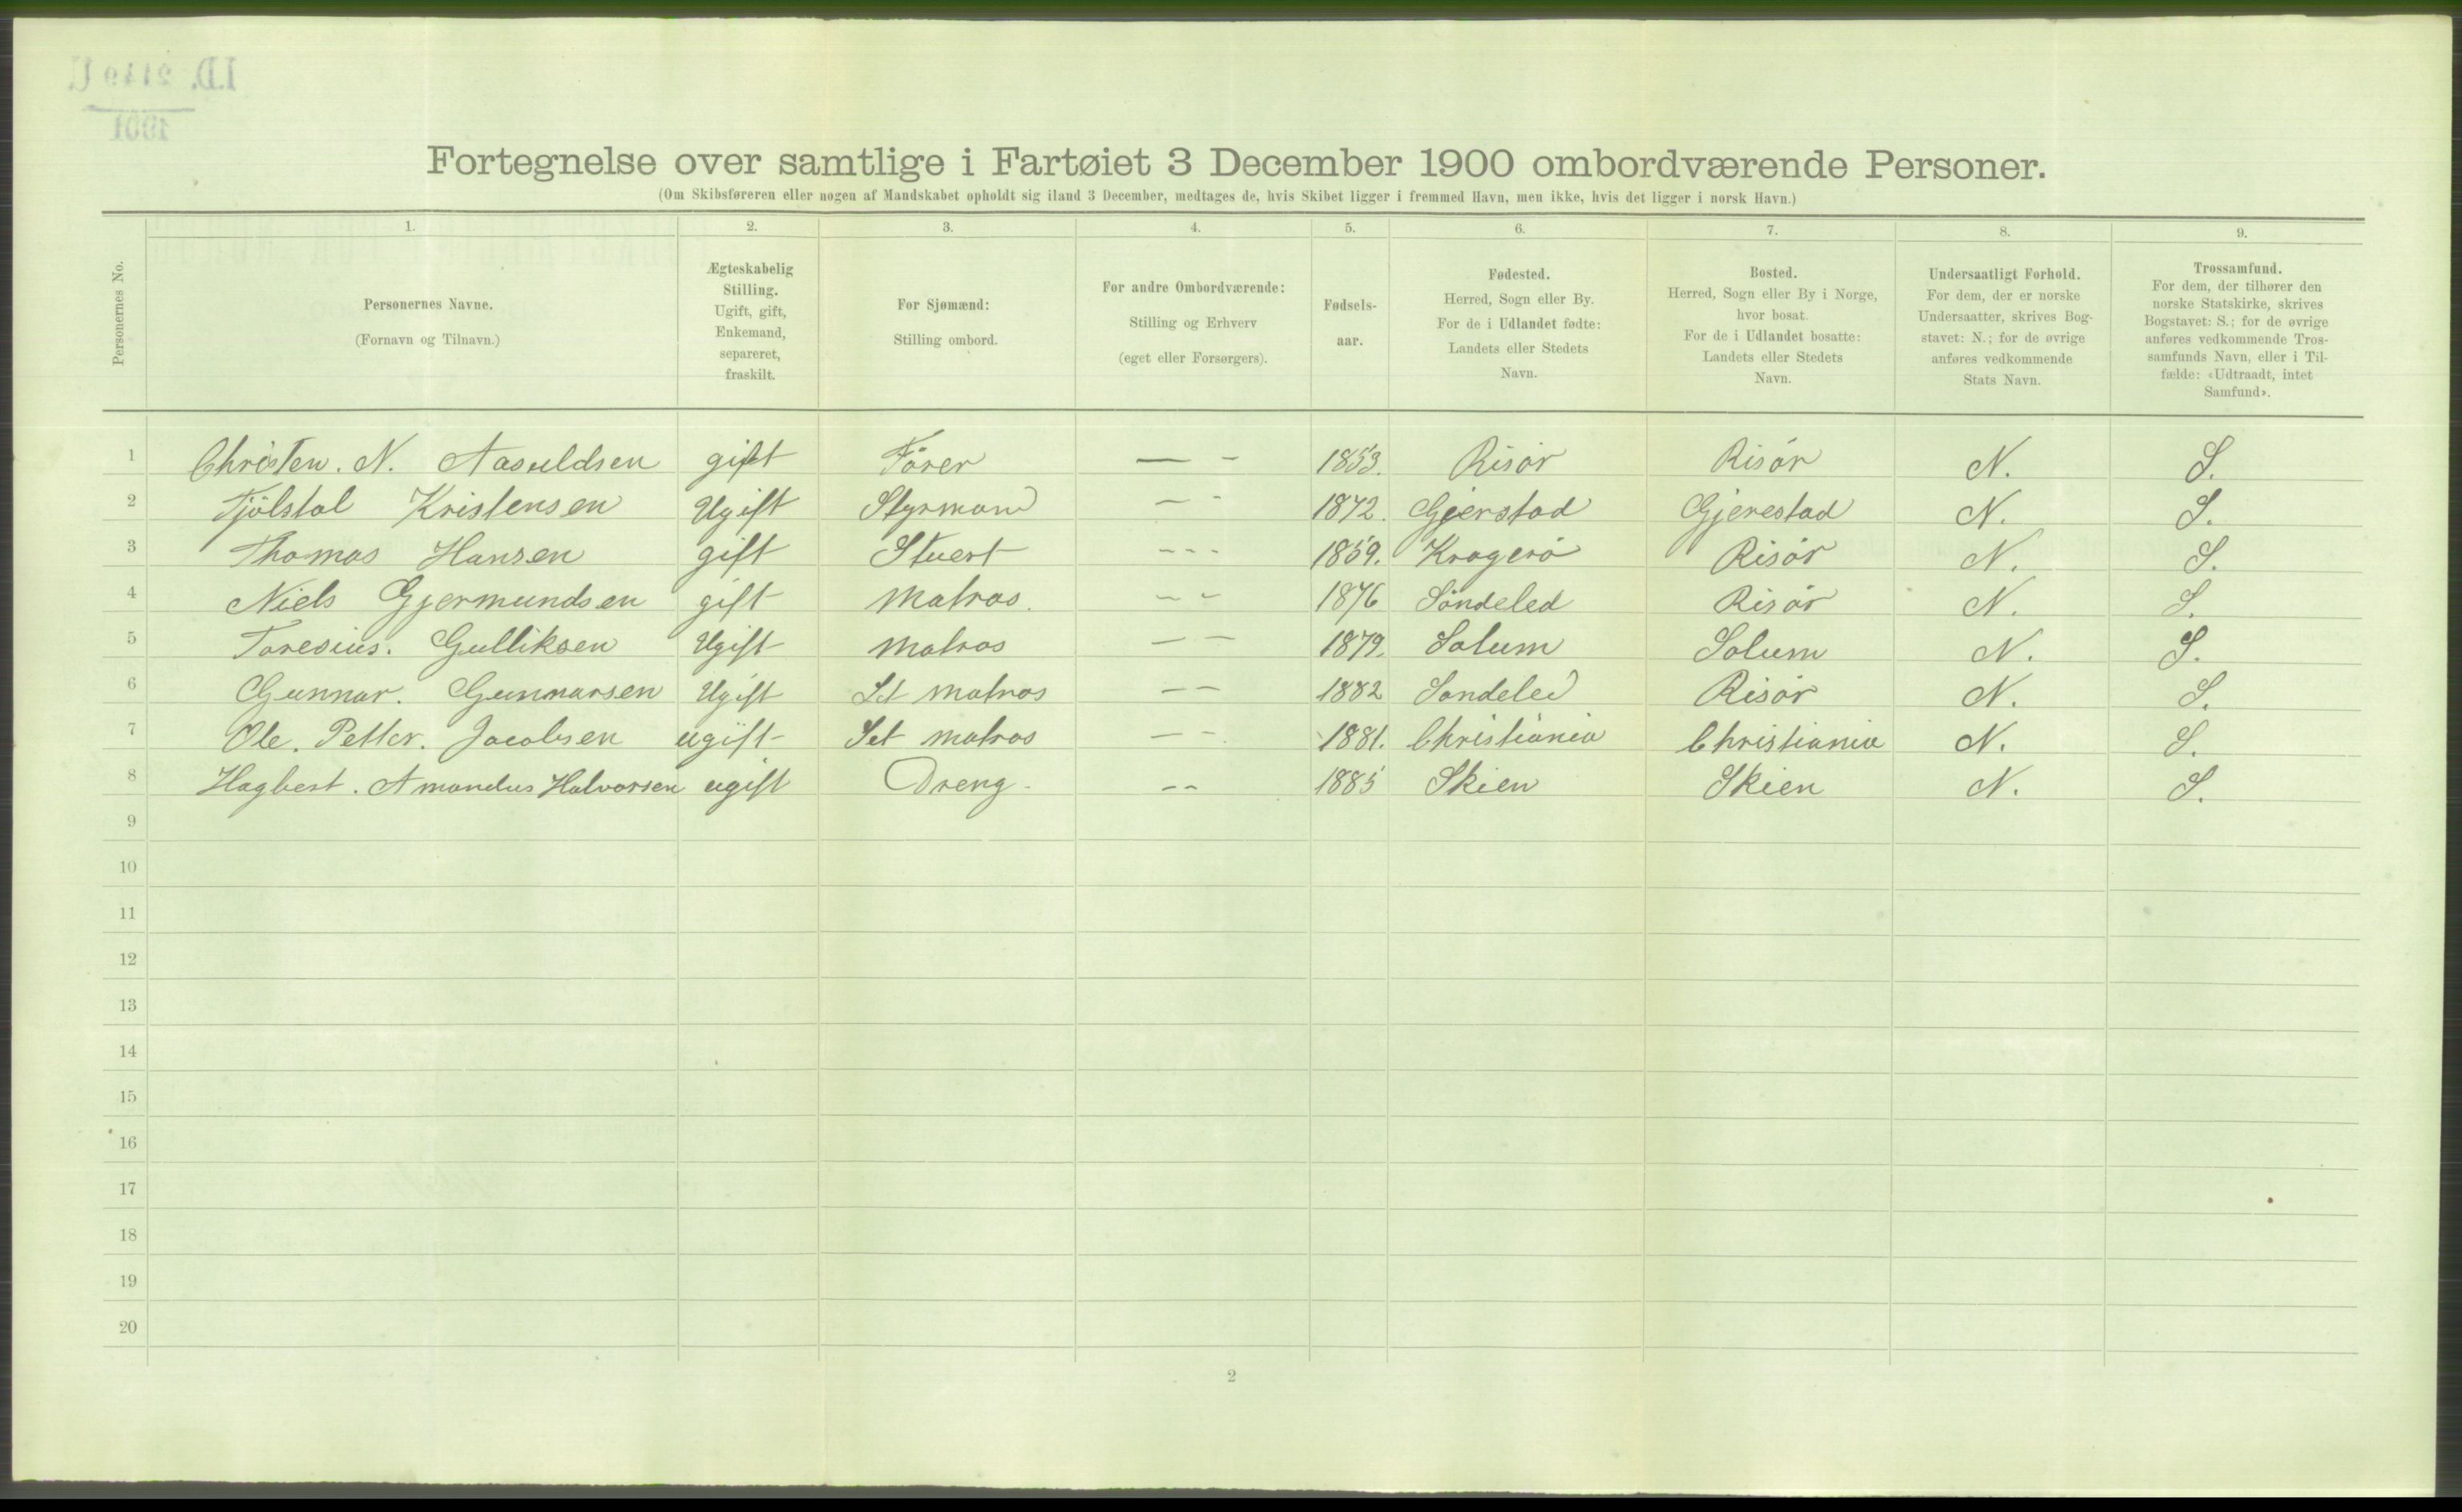 I.D. 2149 U.
1901
Fortegnelse over samtlige i Fartøiet 3 December 1900 ombordværende Personer.
(Om Skibsføreren eller nogen af Mandskabet opholdt sig iland 3 December, medtages de, hvis Skibet ligger i fremmed Havn, men ikke, hvis det ligger i norsk Havn.)
Personernes No.
1.
Personernes Navne.
(Fornavn og Tilnavn.)
2.
Ægteskabelig
Stilling.
Ugift, gift,
Enkemand,
separeret,
fraskilt.
3.
For Sjømænd:
Stilling ombord.
4.
For andre Ombordværende:
Stilling og Erhverv
(eget eller Forsørgers).
5.
Fødsels-
aar.
6.
Fødested.
Herred, Sogn eller By.
For de i Udlandet fødte:
Landets eller Stedets
Navn.
7.
Bosted.
Herred, Sogn eller By i Norge,
hvor bosat.
For de i Udlandet bosatte:
Landets eller Stedets
Navn.
8.
Undersaatligt Forhold.
For dem, der er norske
Undersaatter, skrives Bog-
stavet: N.; for de øvrige
anføres vedkommende
Stats Navn.
9.
Trossamfund.
For dem, der tilhører den
norske Statskirke, skrives
Bogstavet: S.; for de øvrige
anføres vedkommende Tros-
samfunds Navn, eller i Til-
fælde: «Udtraadt, intet
Samfund».
1 Christen. N. Aasuldsen gift Förer — - 1853. Risör Risör N. S.
2 Tjölstol Kristensen Ugift Styrmand — - 1872. Gjerstad Gjerestad N. S.
3 Thomas Hansen gift Stuert - - - 1859. Kragerö Risör N. S.
4 Niels Gjermundsen gift Matros. — - 1876 Söndeled Risör N. S.
5 Toresius. Gulliksen Ugift Matros — — 1879. Solum Solum N. S.
6 Gunnar. Gunnarsen Ugift Let matros — — 1882 Sondeled Risör N. S.
7 Ole. Petter. Jacobsen ugift Let matros — - 1881. Christiania Christiania N. S.
8 Hagbert. Amandus Halvorsen ugift Dreng - - 1885 Skien Skien N. S.
9
10
11
12
13
14
15
16
17
18
19
20
2